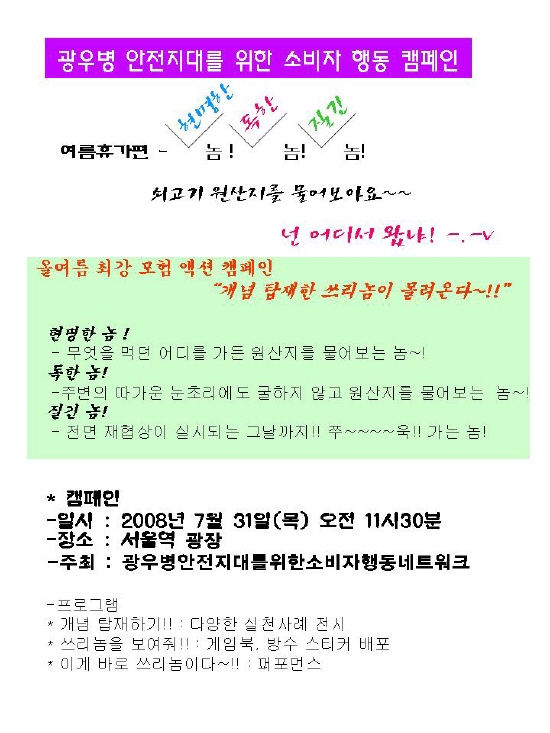 광우병 안전지대를 위한 소비자 행동 캠페인
현명한 독한 질긴
여름휴가편 - 놈! 놈! 놈!
쇠고기 원산지를 물어보아요~~
넌 어디서 왔냐! -.-v
올여름 최강 모험 액션 캠페인
“개념 탑재한 쓰리놈이 몰려온다~!!”
현명한 놈!
- 무엇을 먹던 어디를 가든 원산지를 물어보는 놈~!
독한 놈!
-주변의 따가운 눈초리에도 굴하지 않고 원산지를 물어보는 놈~!
질긴 놈!
- 전면 재협상이 실시되는 그날까지!! 쭈~~~~욱!! 가는 놈!
* 캠페인
-일시 : 2008년 7월 31일(목) 오전 11시30분
-장소 : 서울역 광장
-주최 : 광우병안전지대를위한소비자행동네트워크
-프로그램
* 개념 탑재하기!! : 다양한 실천사례 전시
* 쓰리놈을 보여줘!! : 게임북, 방수 스티커 배포
* 이게 바로 쓰리놈이다~!! : 퍼포먼스